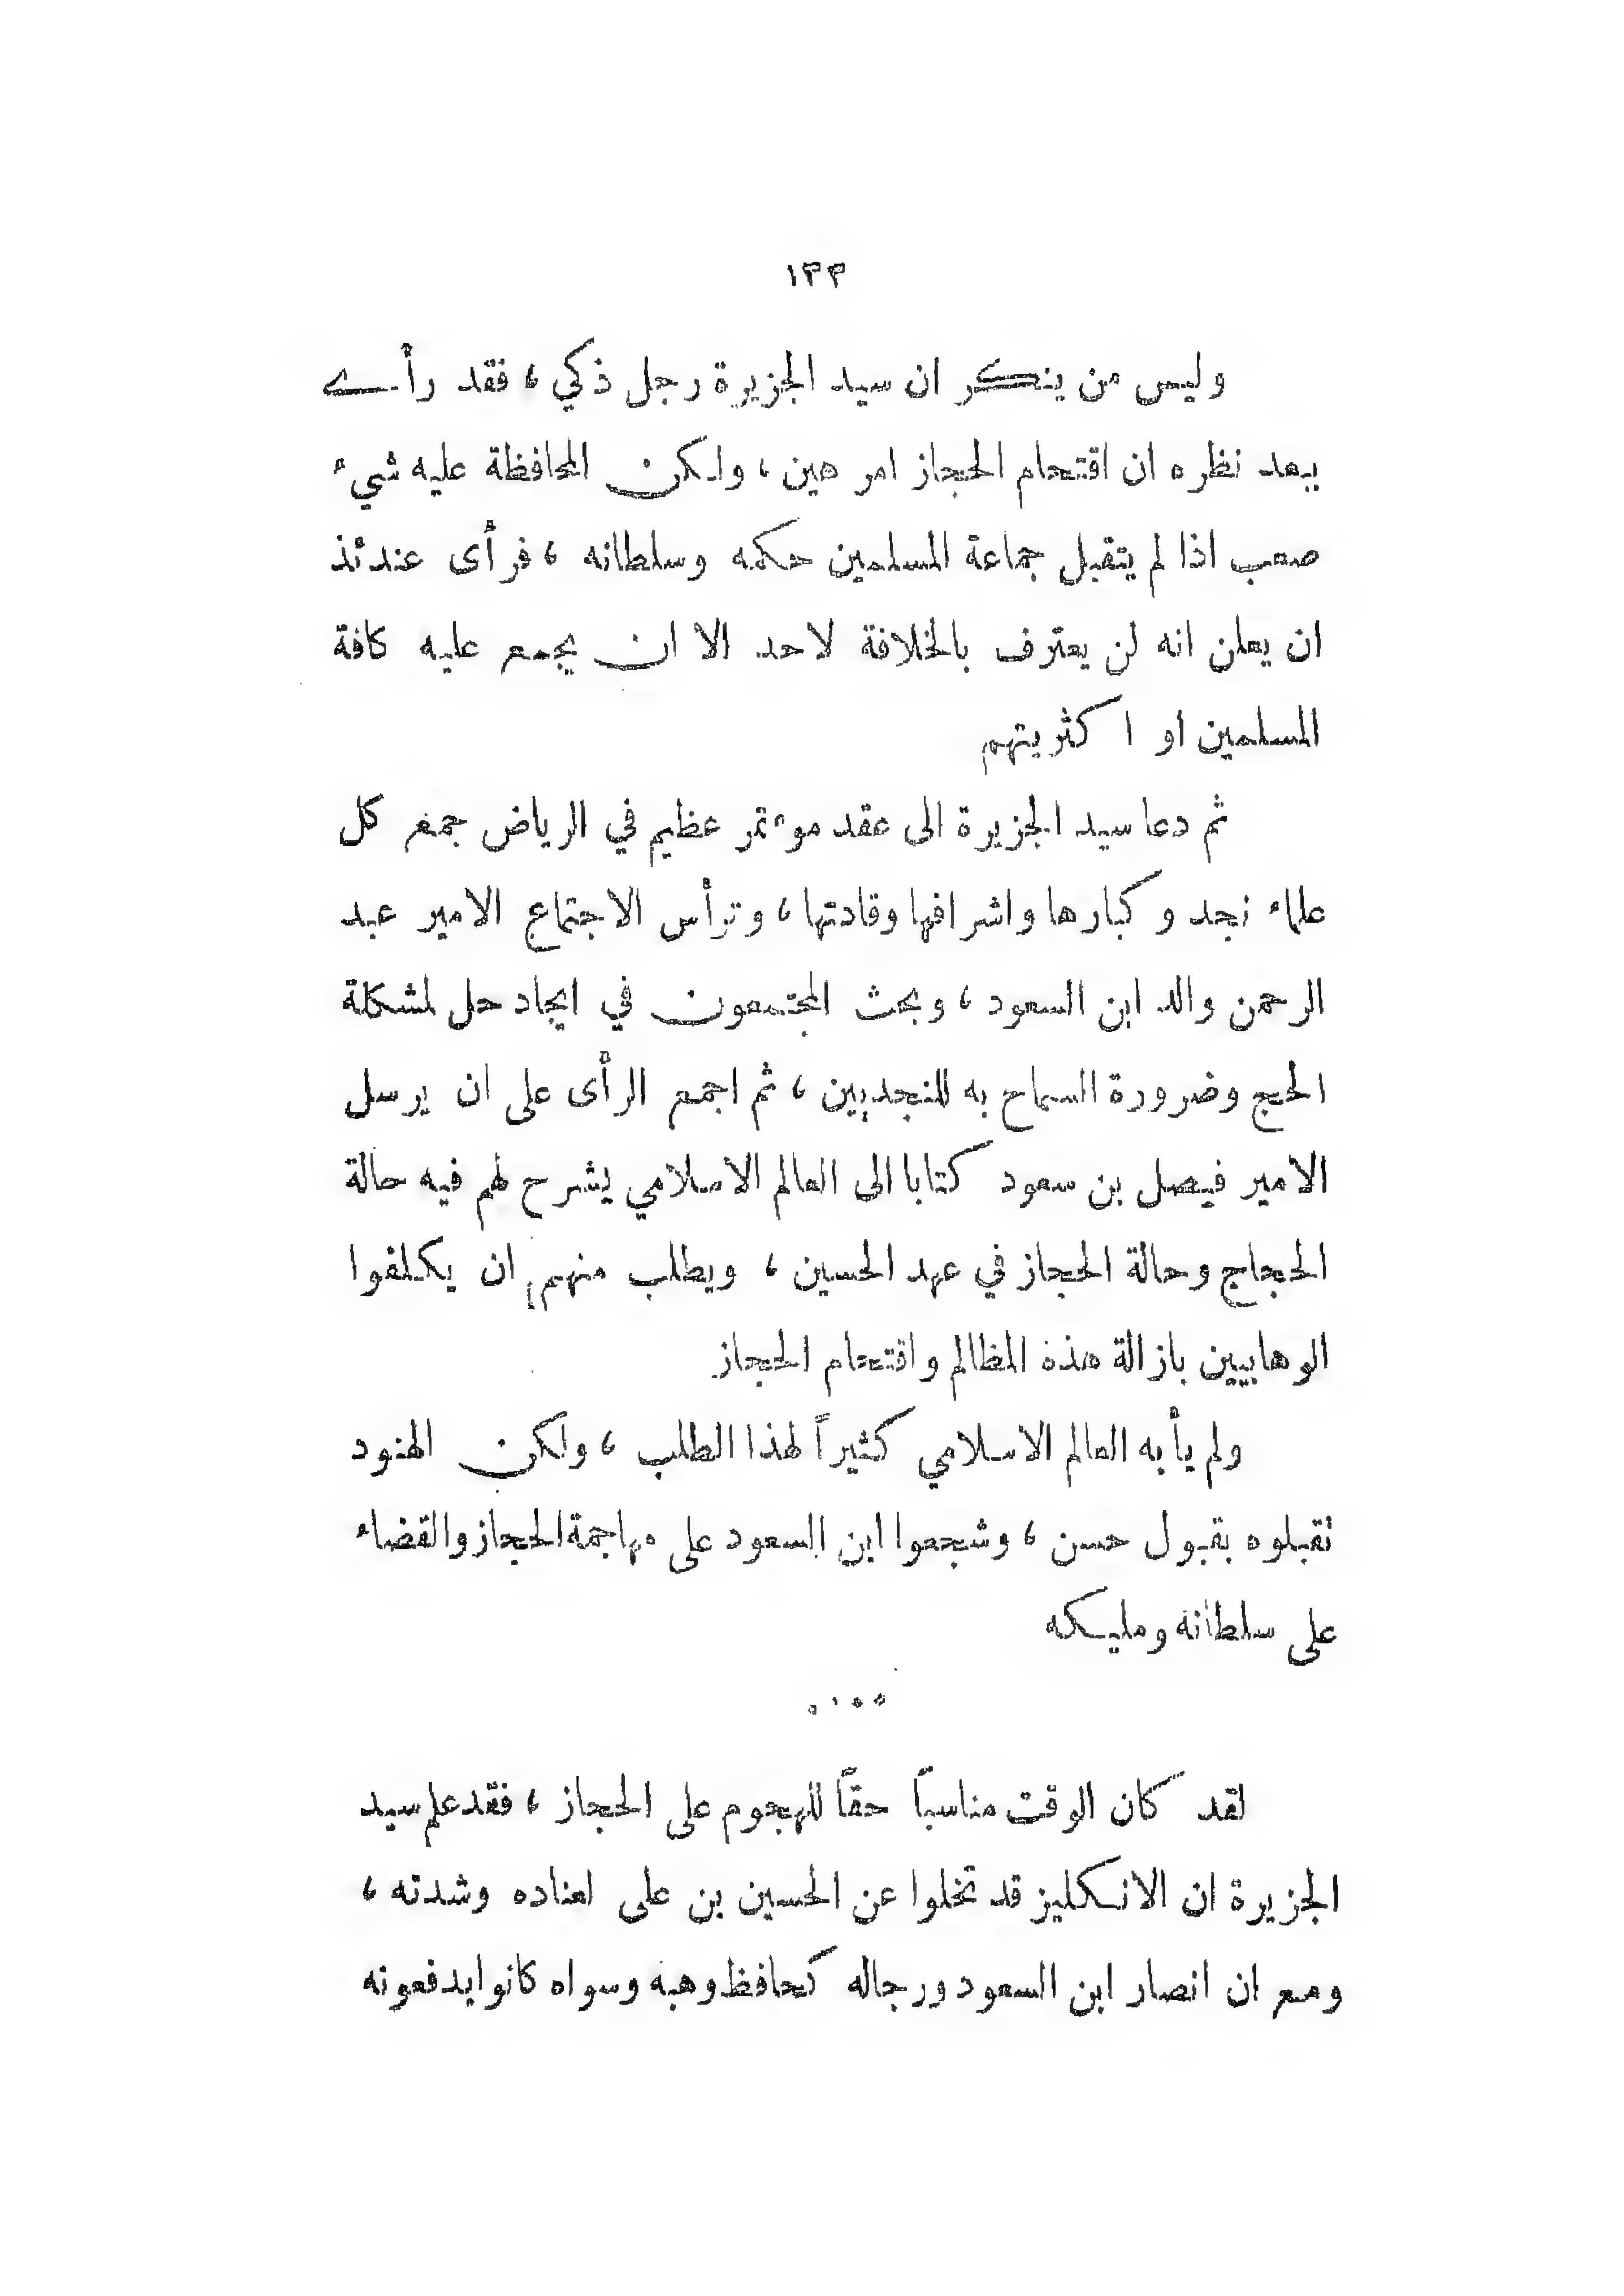 ١٣٣
وليس من ينكر ان سيد الجزيرة رجل ذكي ، فقد رأى
ببعد نظره ان اقتحام الحجاز امر هين ، ولكن المحافظة عليه شيء
صعب اذا لم يتقبل جماعة المسلمين حكمه وسلطانه ، فرأى عندئذ
ان يعلن انه لن يعترف بالخلافة لاحد الا ان يجمع عليه كافة
المسلمين او اكثريتهم
ثم دعا سيد الجزيرة الى عقد موءتمر عظيم في الرياض جمع كل
علماء نجد وكبارها واشرافها وقادتها ، وترأس الاجتماع الامير عبد
الرحمن والد ابن السعود ، وبحث المجتمعون في ايجاد حل لمشكلة
الحج وضرورة السماح به للنجديين ، ثم اجمع الرأى على ان يرسل
الامير فيصل بن سعود كتابا الى العالم الاسلامي يشرح لهم فيه حالة
الحجاج وحالة الحجاز في عهد الحسين ، ويطلب منهم ان يكلفوا
الوهابيين بازالة هذه المظالم واقتحام الحجاز
ولم يأبه العالم الاسلامي كثيراً لهذا الطلب ، ولكن الهنود
تقبلوه بقبول حسن ، وشجعوا ابن السعود على مهاجمة الحجاز والقضاء
على سلطانه ومليكه
....
لقد كان الوقت مناسباً حقاً للهجوم على الحجاز ، فقد علم سيد
الجزيرة ان الانكليز قد تخلوا عن الحسين بن على لعناده وشدته ،
ومع ان انصار ابن السعود ورجاله كحافظ وهبه وسواه كانوا يدفعونه